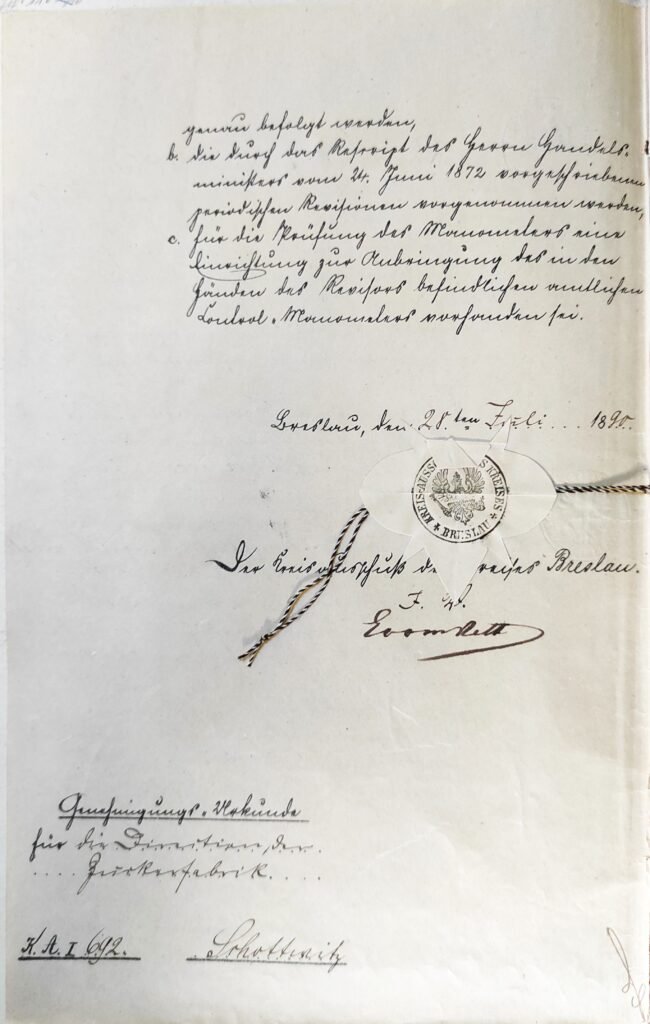 genau befolgt werden,
b. die durch das Rescript des Herrn Handels-
ministers vom 24. Juni 1872 vorgeschriebenen
periodischen Revisionen vorgenommen werden,
c. für die Prüfung des Manometers eine
Einrichtung zur Anbringung des in den
Händen des Revisors befindlichen amtlichen
Control-Manometers vorhanden sei.
Breslau, den 28.ten Juli 1890.
KREIS-AUSS S KREISES
* BRESLAU *
Der Kreisausschuß de reises Breslau.
I. V.
Genehmigungs-Urkunde
für die Direction der
Zuckerfabrik
K. A. I 692. Schottwitz